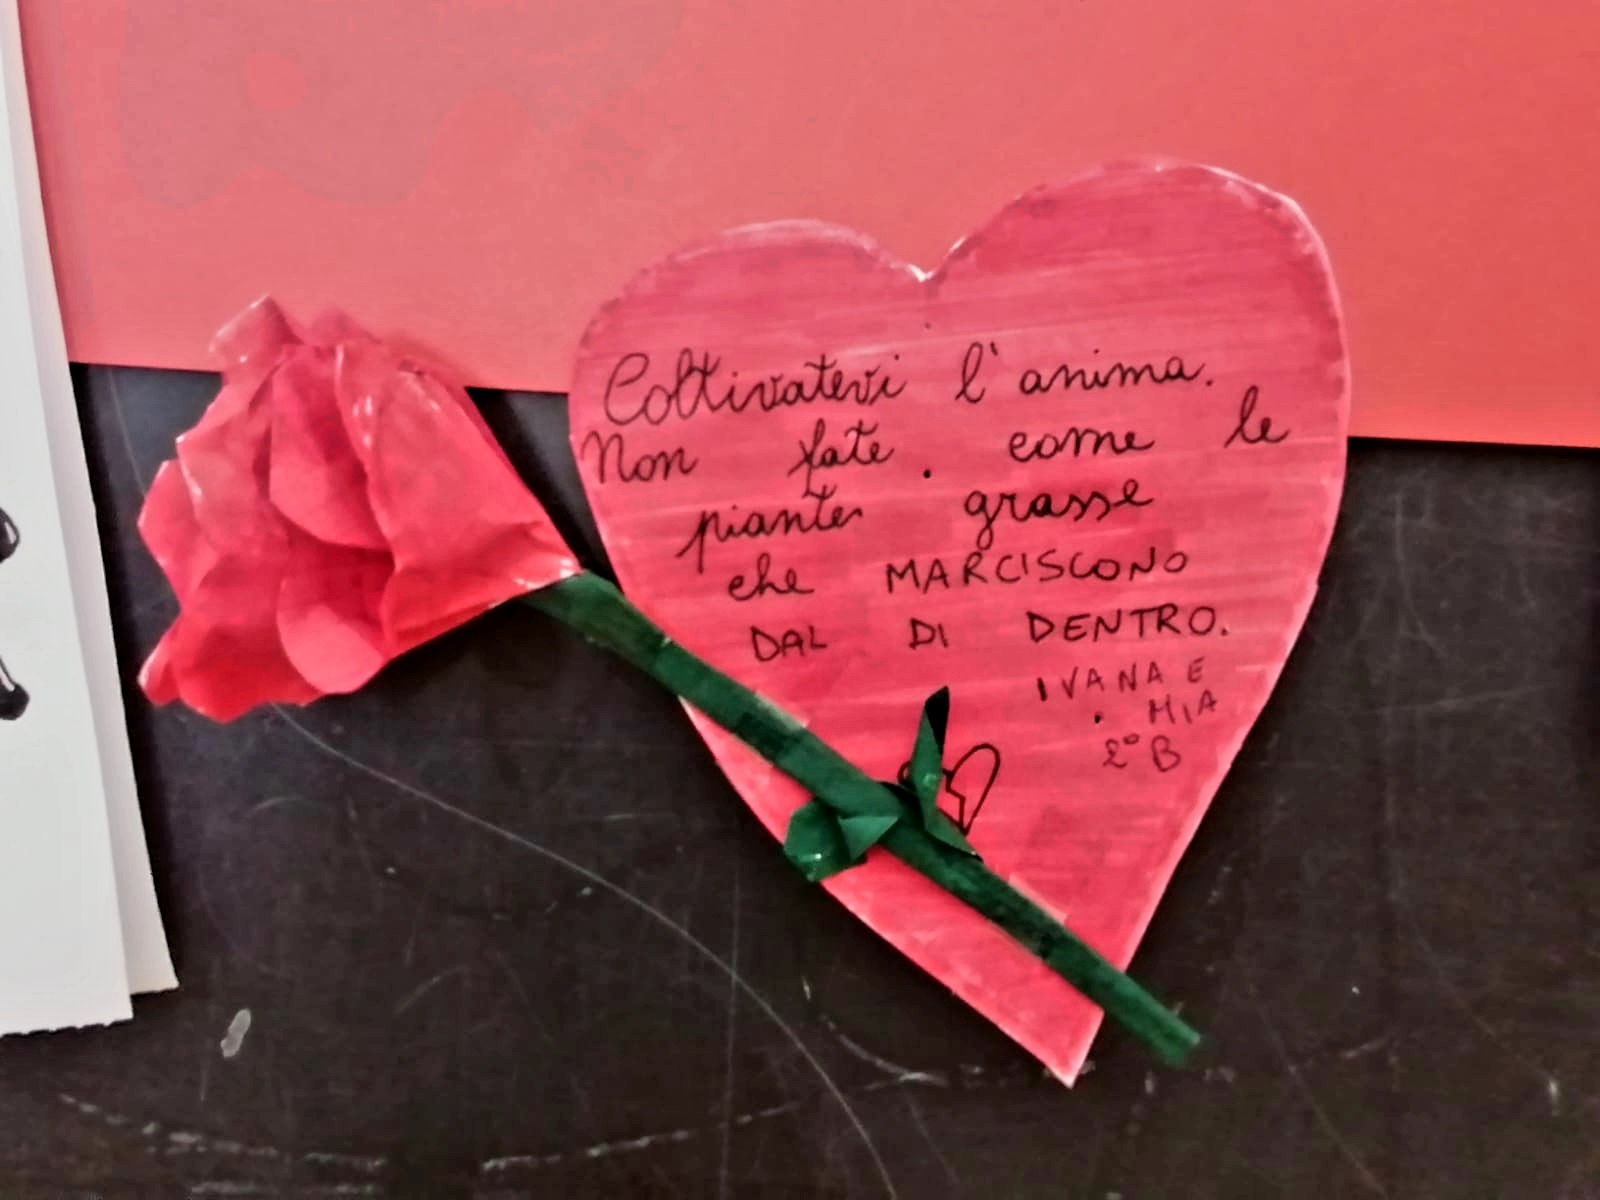 Coltivatevi l'anima.
Non fate come le
piante grasse
che MARCISCONO
DAL DI DENTRO.
IVANA E
MIA
2° B